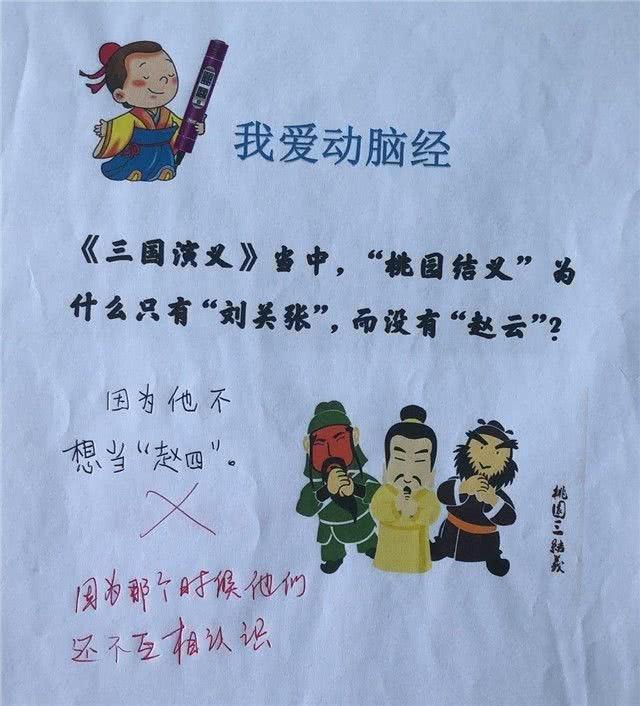 我爱动脑经
《三国演义》当中，“桃园结义”为
什么只有“刘关张”，而没有“赵云”？
因为他不
想当“赵四”。
桃园三结義
因为那个时候他们
还不互相认识